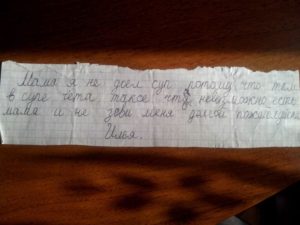 Мама я не доел суп потому что там
в супе чёта такое что невозможно есть
мама и не зови меня домой пожалуйста
Илья.